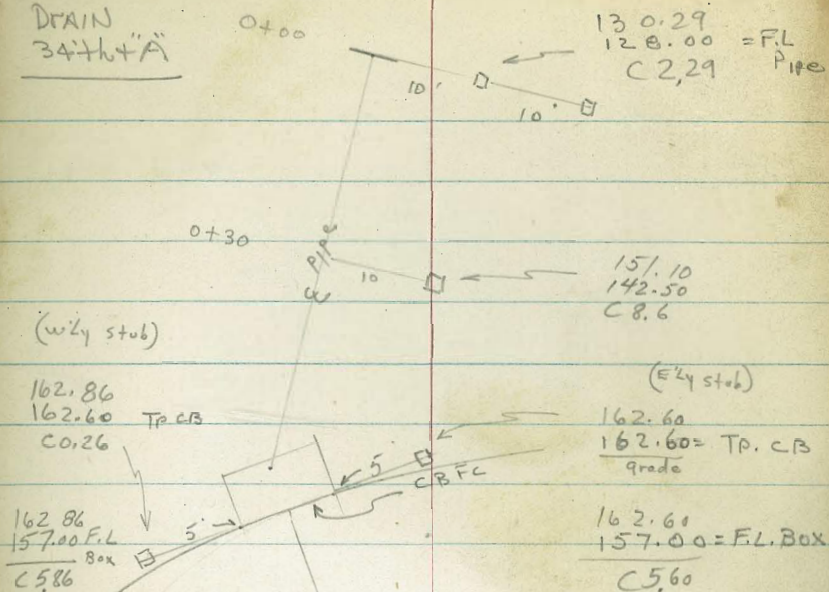 DrAIN
34th + "A"
0+00
130.29
128.00 = F.L
Pipe
C 2,29
10'
10'
0+30
PIPE
10
151.10
142.50
C 8.6
(W'ly stub)
162.86
162.60 Tp CB
C0.26
(E'ly stub)
162.60
162.60 = TP. CB
grade
5
CB FC
162 86
157.00 F.L
Box
C 5.86
5'
162.60
157.00 = F.L. BOX
C 5,60